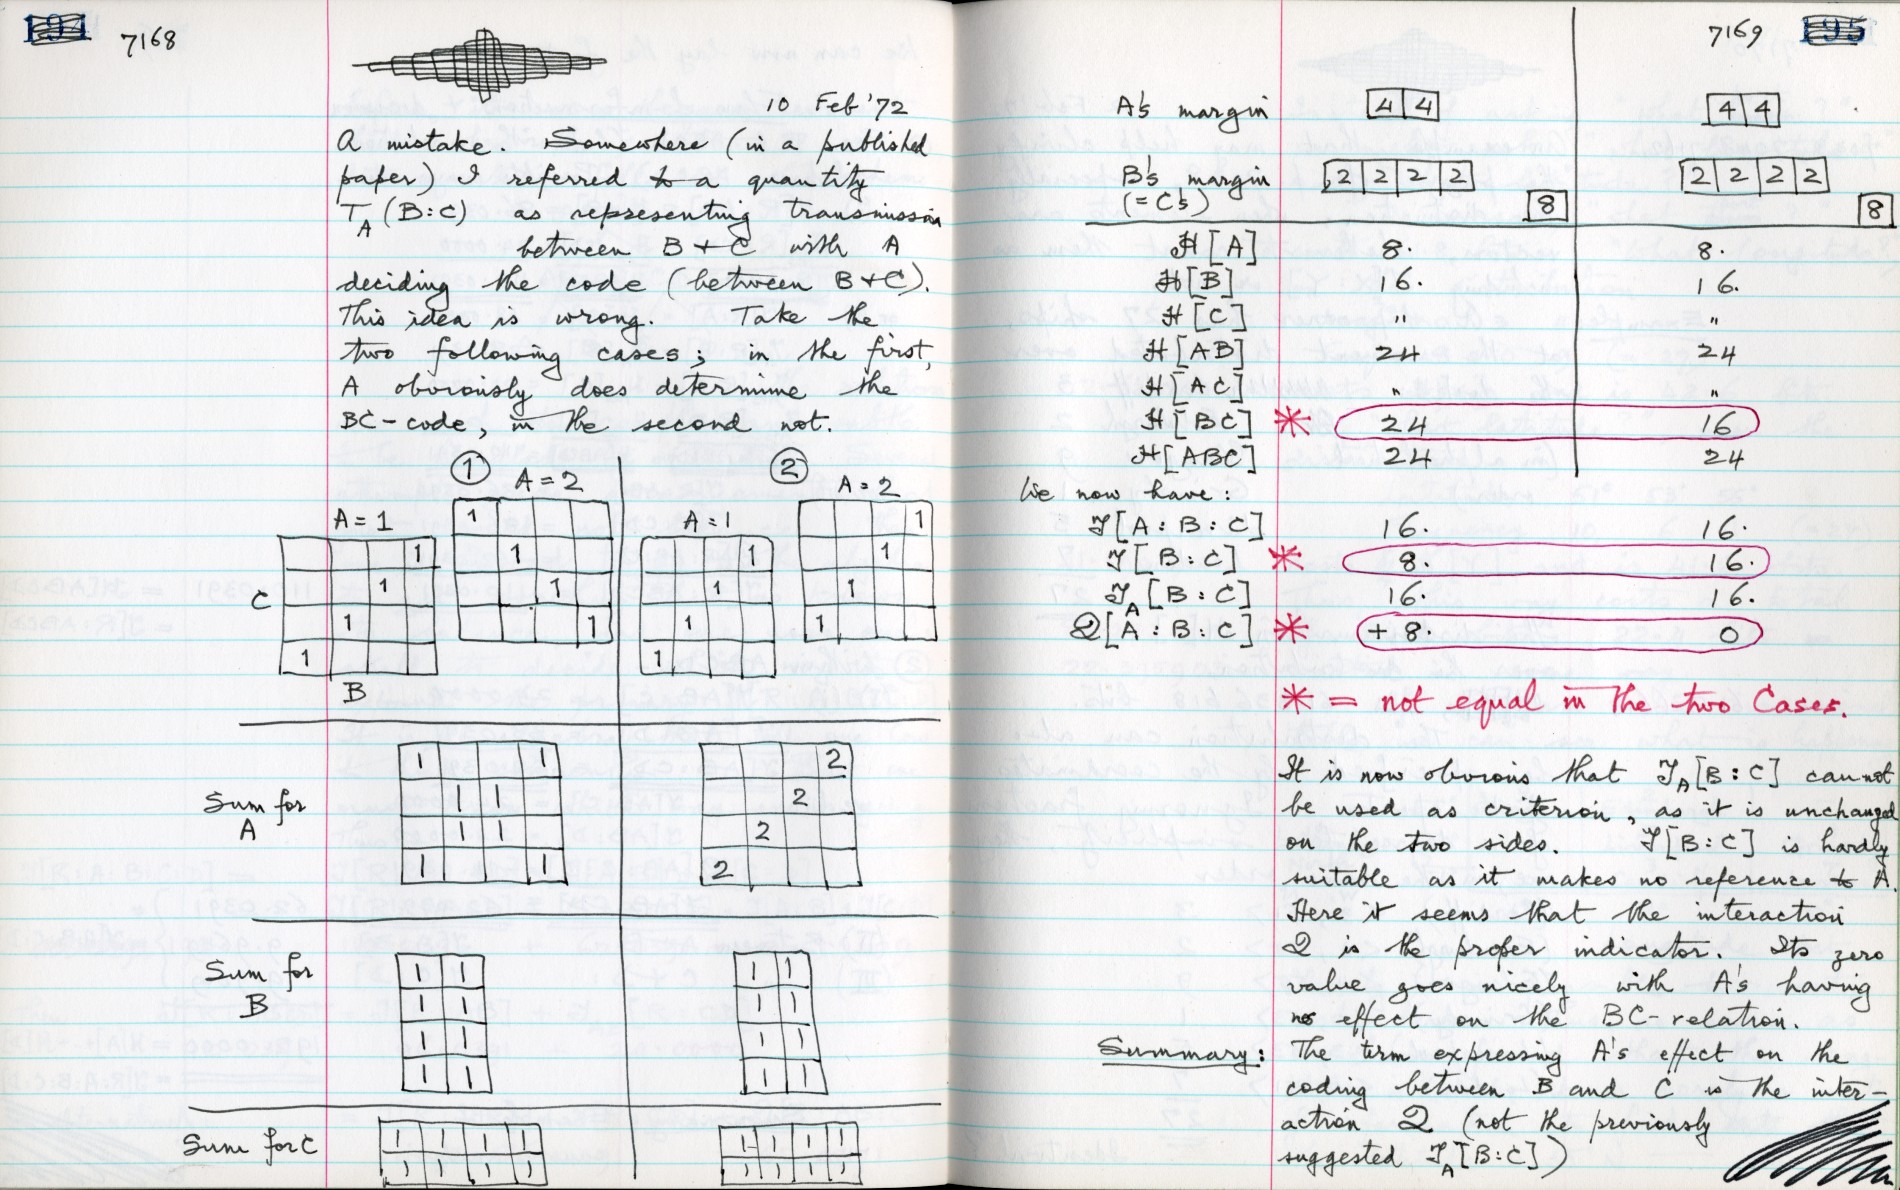 194
7168
10 Feb '72
A mistake. Somewhere (in a published
paper) I referred to a quantity
T_A (B:C) as representing transmission
between B + C with A
deciding the code (between B+C).
This idea is wrong. Take the
two following cases; in the first,
A obviously does determine the
BC-code, in the second not.
① ②
A=2 A=2
A=1 A=1
1 1
1 1
1 1
1 1
C
1 1
1 1
1 1
1 1
B
Sum for
A
1 1 2
1 1 2
1 1 2
1 1 2
Sum for
B
1 1 1 1
1 1 1 1
1 1 1 1
1 1 1 1
Sum for C
1 1 1 1 1 1 1 1
1 1 1 1 1 1 1 1
7169
195
A's margin 4 4 4 4
B's margin 2 2 2 2 2 2 2 2
(= C's) 8 8
H[A] 8. 8.
H[B] 16. 16.
H[C] " "
H[AB] 24 24
H[AC] " "
H[BC] * 24 16
H[ABC] 24 24
We now have:
T[A:B:C] 16. 16.
T[B:C] * 8. 16.
T_A[B:C] 16. 16.
Q[A:B:C] * +8. 0
* = not equal in the two Cases.
It is now obvious that T_A[B:C] cannot
be used as criterion, as it is unchanged
on the two sides. T[B:C] is hardly
suitable as it makes no reference to A.
Here it seems that the interaction
Q is the proper indicator. Its zero
value goes nicely with A's having
no effect on the BC-relation.
Summary: The term expressing A's effect on the
coding between B and C is the inter-
action Q (not the previously
suggested T_A[B:C])